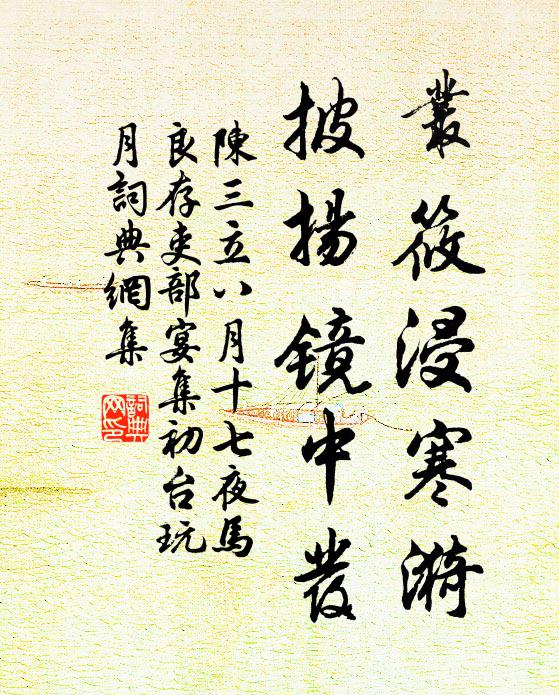 叢筱浸寒漪
披揚鏡中髮
陳三立八月十七夜馬
良存吏部宴集初台玩
月詞典網集
詞典
网印